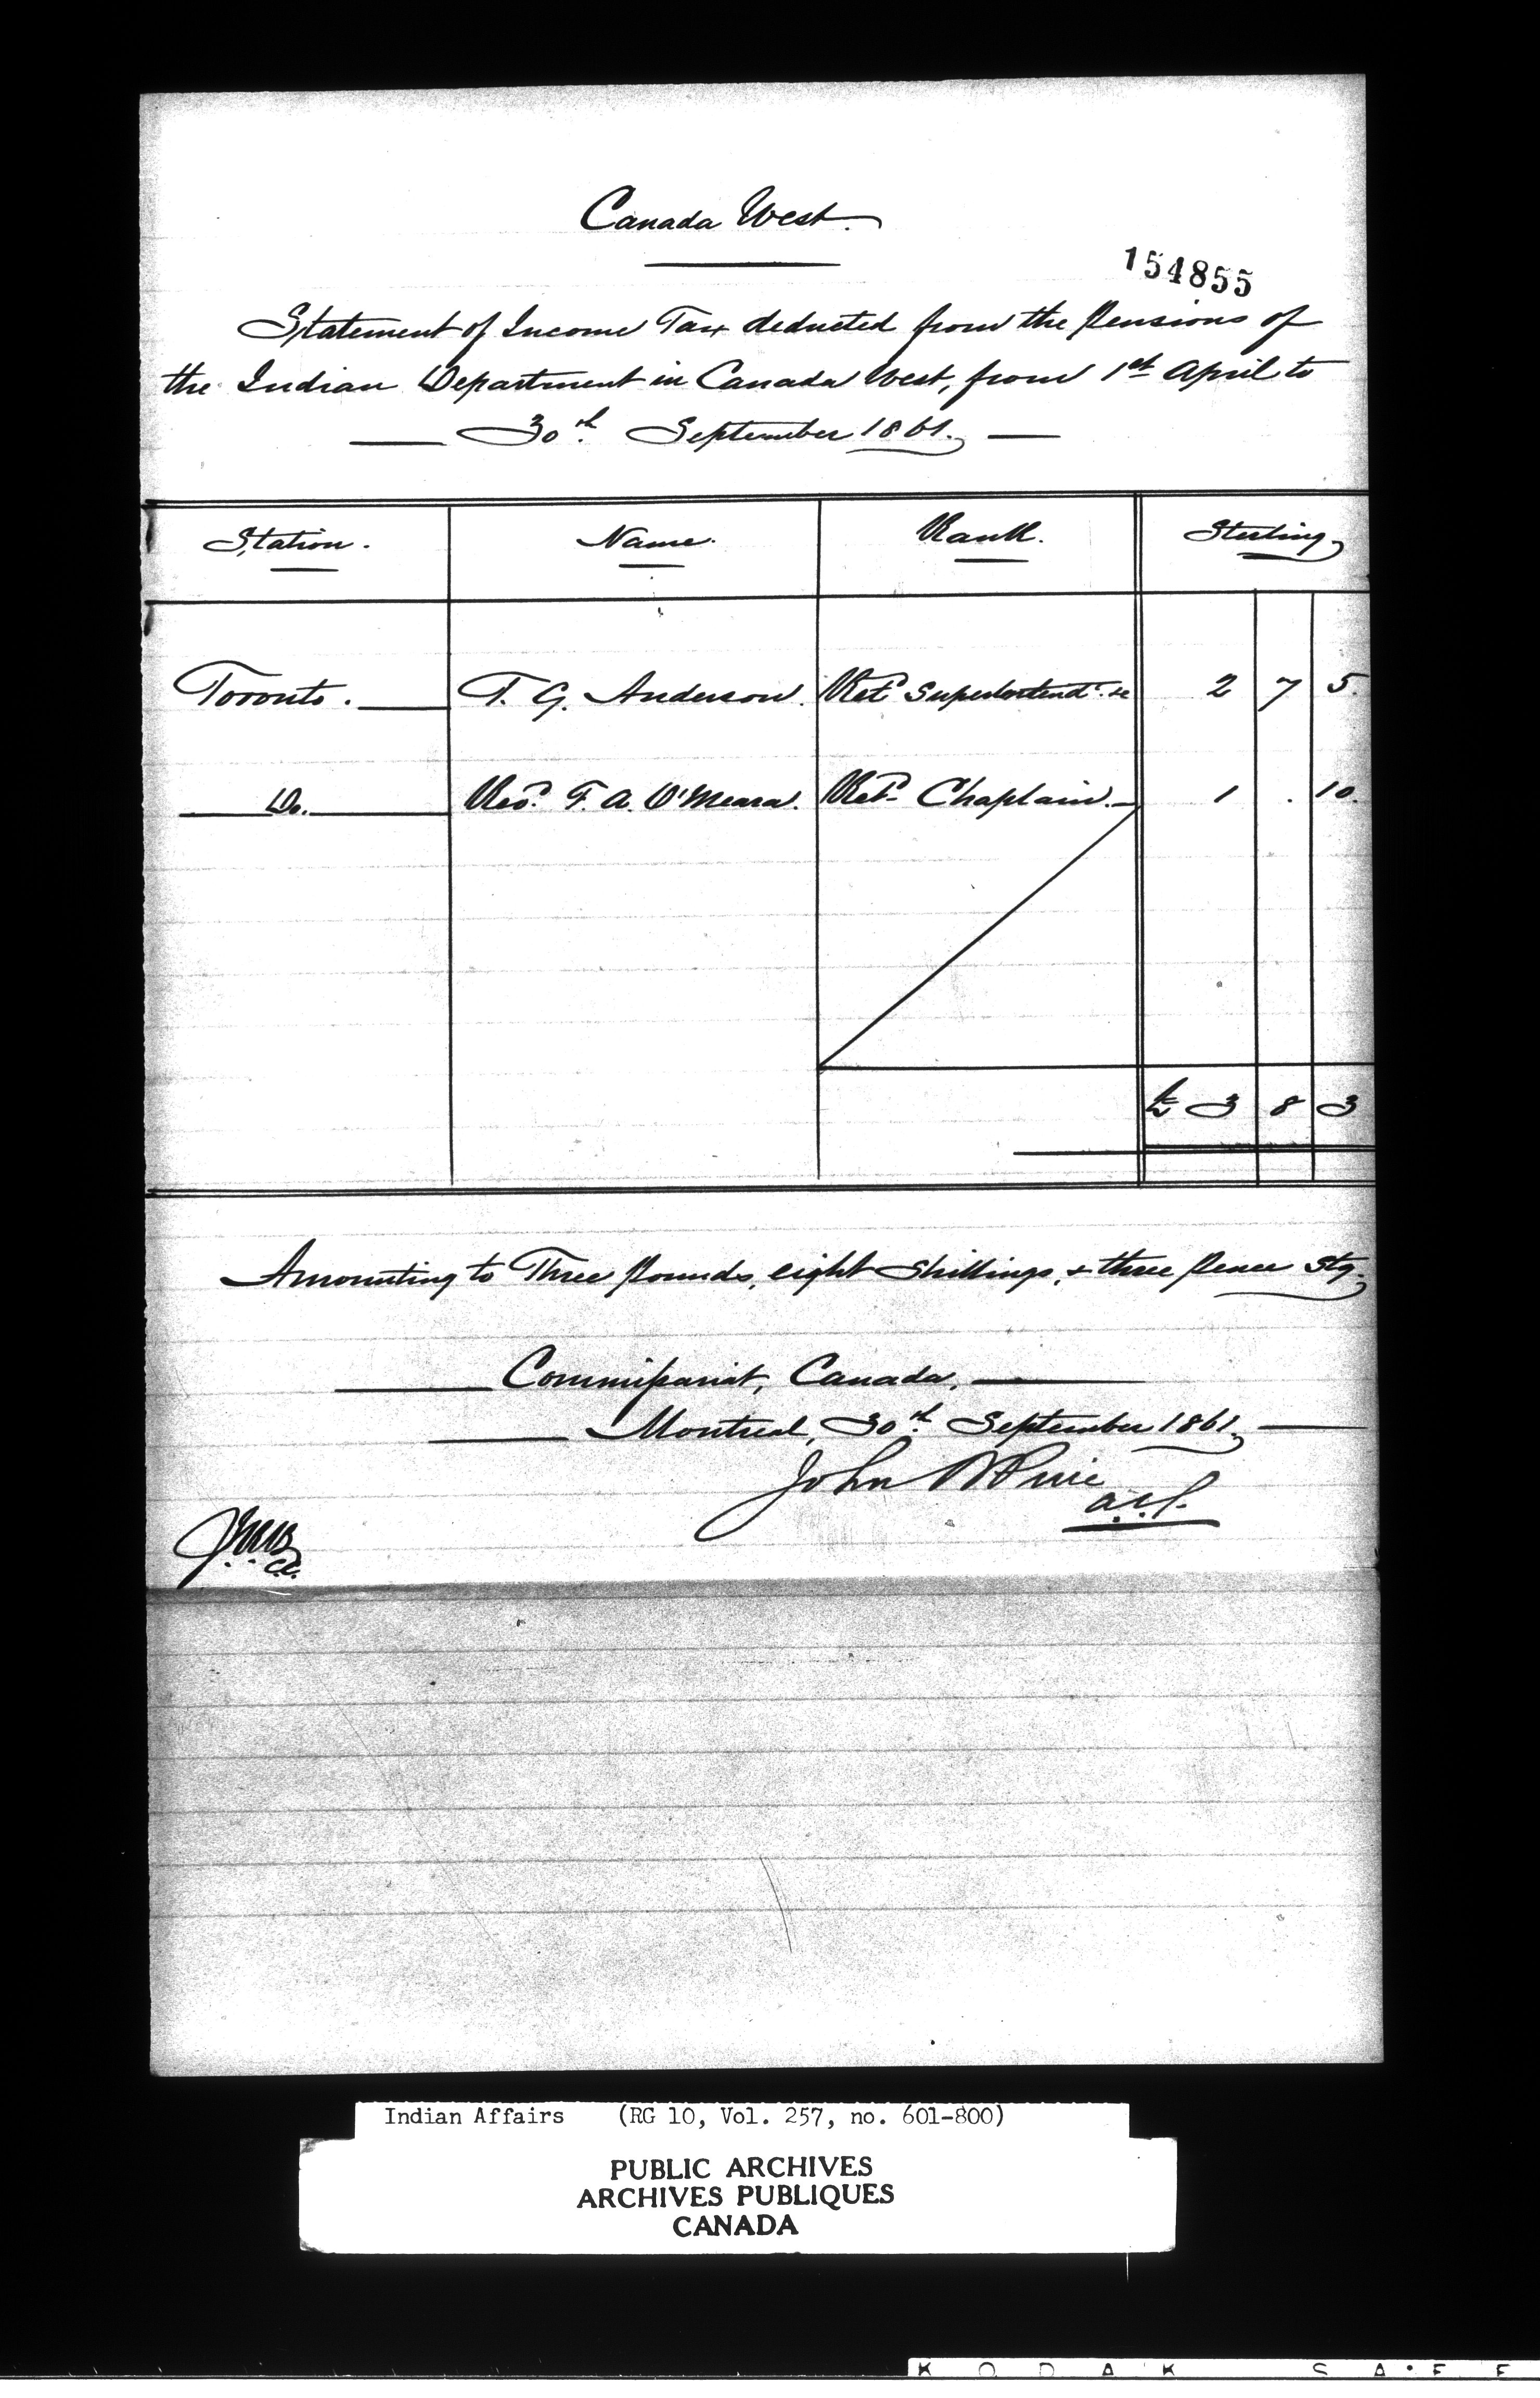 Canada West.
154855
Statement of Income Tax deducted from the Pensions of
the Indian Department in Canada West, from 1st April to
30th September 1861.
Station. Name. Rank. Sterling
Toronto. T. G. Anderson. Retd Superintendt &c 2 7 5.
Do. Revd. F. A. O'Meara. Retd Chaplain. 1 . 10.
£ 3 8 3
Amounting to Three Pounds, eight Shillings, & three Pence Stg.
Commissariat, Canada,
Montreal, 30th September 1861.
John
Indian Affairs (RG 10, Vol. 257, no. 601-800)
PUBLIC ARCHIVES
ARCHIVES PUBLIQUES
CANADA
KODAK SAFE